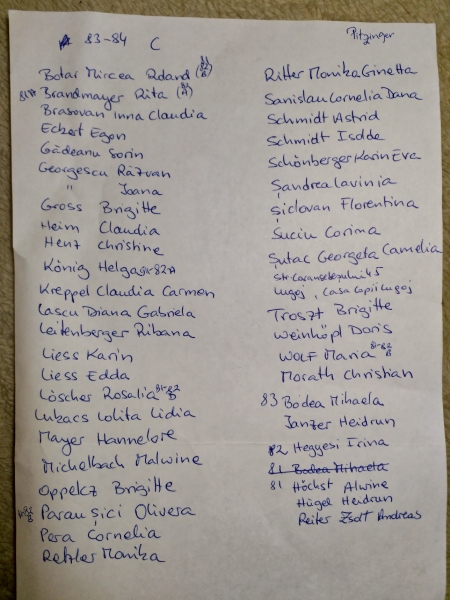 83-84 C
Pitzinger
Botar Mircea Roland (81 82 B)
81A Brandmayer Rita
Brasovan Inna Claudia
Eckert Egon
Gădeanu Sorin
Georgescu Răzvan
" Ioana
Gross Brigitte
Heim Claudia
Henz Christine
König Helga 81-82A
Kreppel Claudia Carmen
Lascu Diana Gabriela
Leitenberger Ribana
Liess Karin
Liess Edda
Löscher Rosalia 81-82 B
Lukacs Lolita Lidia
Mayer Hannelore
Michelbach Malwine
Oppelcz Brigitte
Paraușici Olivera
Pera Cornelia
Retzler Monika
Ritter Monika Ginetta
Sanislau Cornelia Dana
Schmidt Astrid
Schmidt Isolde
Schönberger Karin Eva
Șandrea Lavinia
Șiclovan Florentina
Suciu Corima
Șutac Georgeta Camelia
Str. Caransebeșului 45
Lugoj, Casa Copii Lugoj
Troszt Brigitte
Weinhöpl Doris
Wolf Maria 81-82 B
Morath Christian
83 Bodea Mihaela
Janzer Heidrun
82 Hegyesi Irina
81 Bodea Mihaela
81 Höchst Alwine
Hügel Heidrun
Reiter Zsolt Andreas